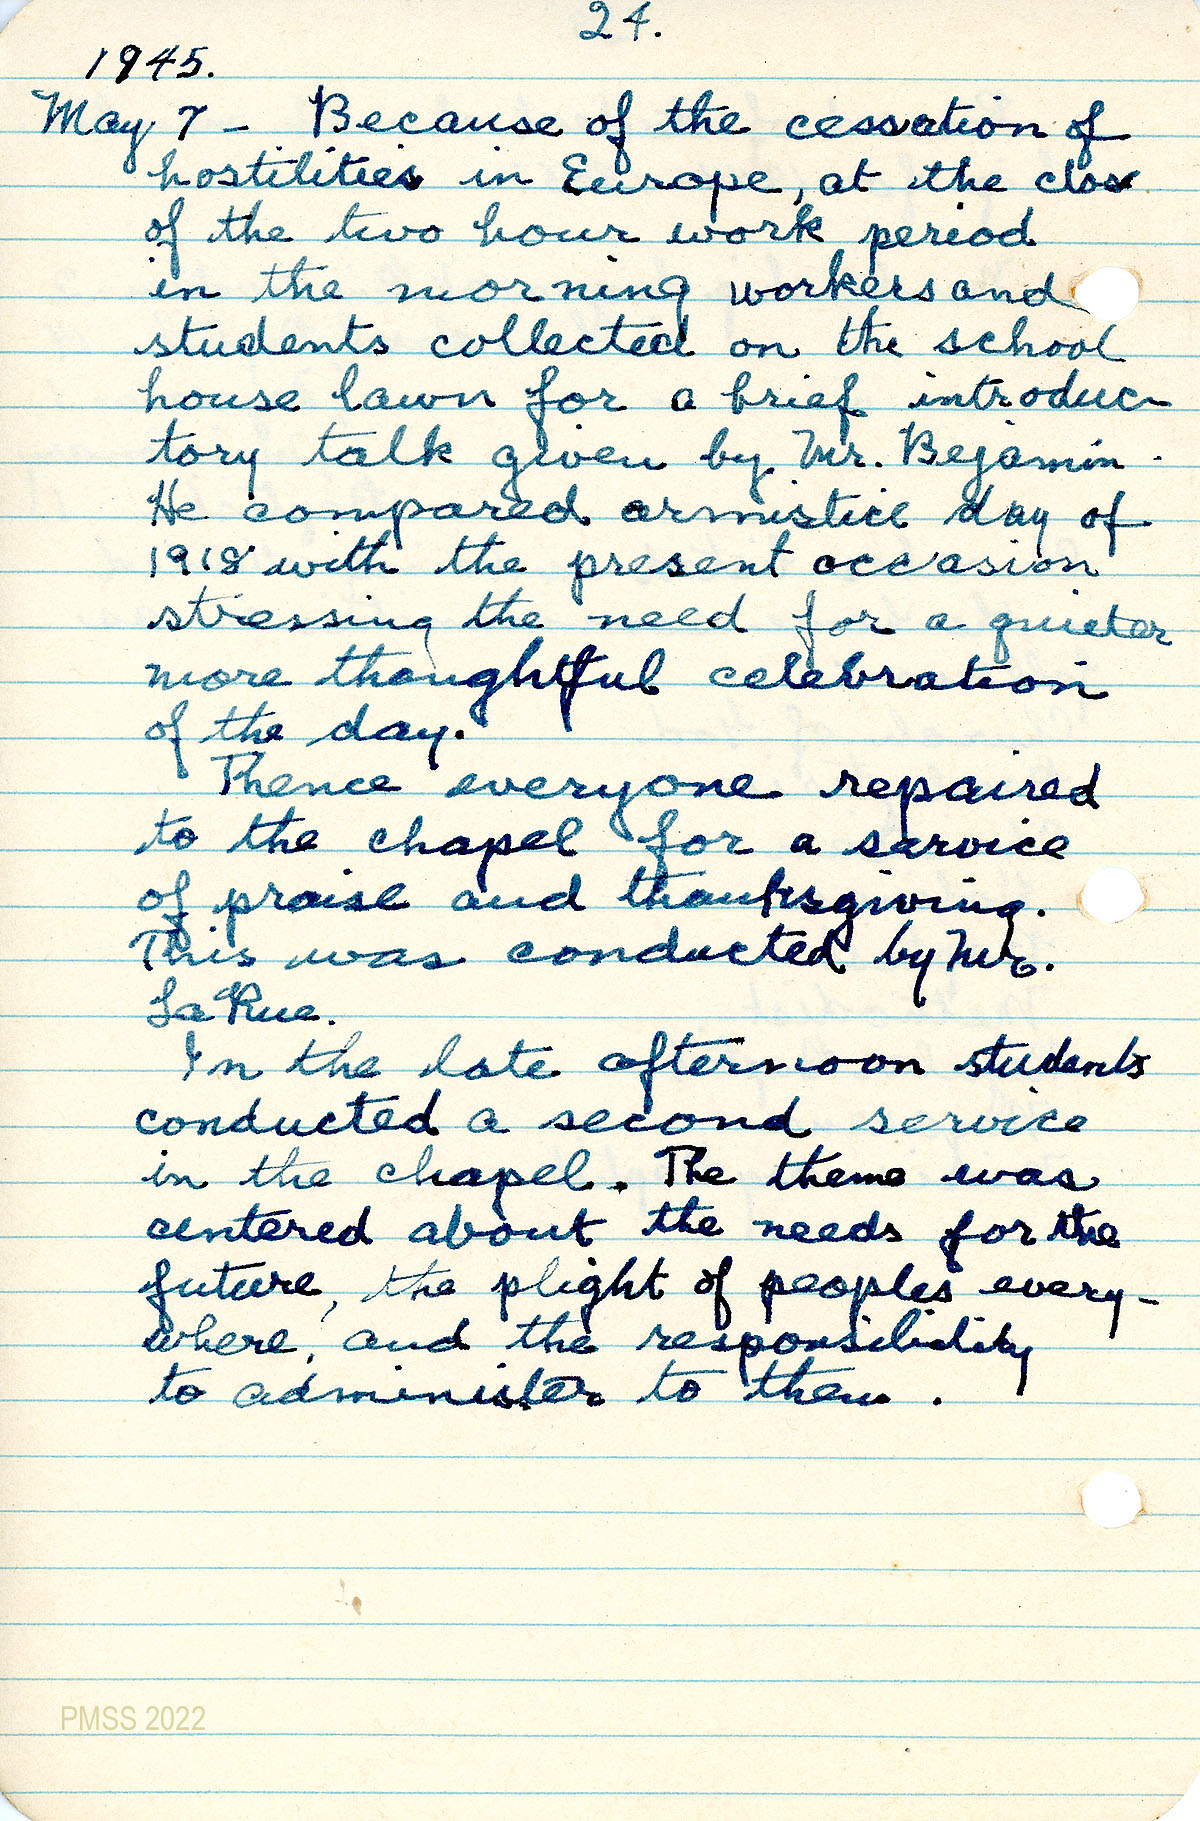 24.
1945.
May 7 - Because of the cessation of
hostilities in Europe, at the close
of the two hour work period
in the morning workers and
students collected on the school
house lawn for a brief introduc-
tory talk given by Mr. Bejamin.
He compared armistice day of
1918 with the present occasion
stressing the need for a quieter
more thoughtful celebration
of the day.
Thence everyone repaired
to the chapel for a service
of praise and thanksgiving.
This was conducted by Mr.
La Rue.
In the late afternoon students
conducted a second service
in the chapel. The theme was
centered about the needs for the
future, the plight of peoples every-
where, and the responsibility
to administer to them.
PMSS 2022